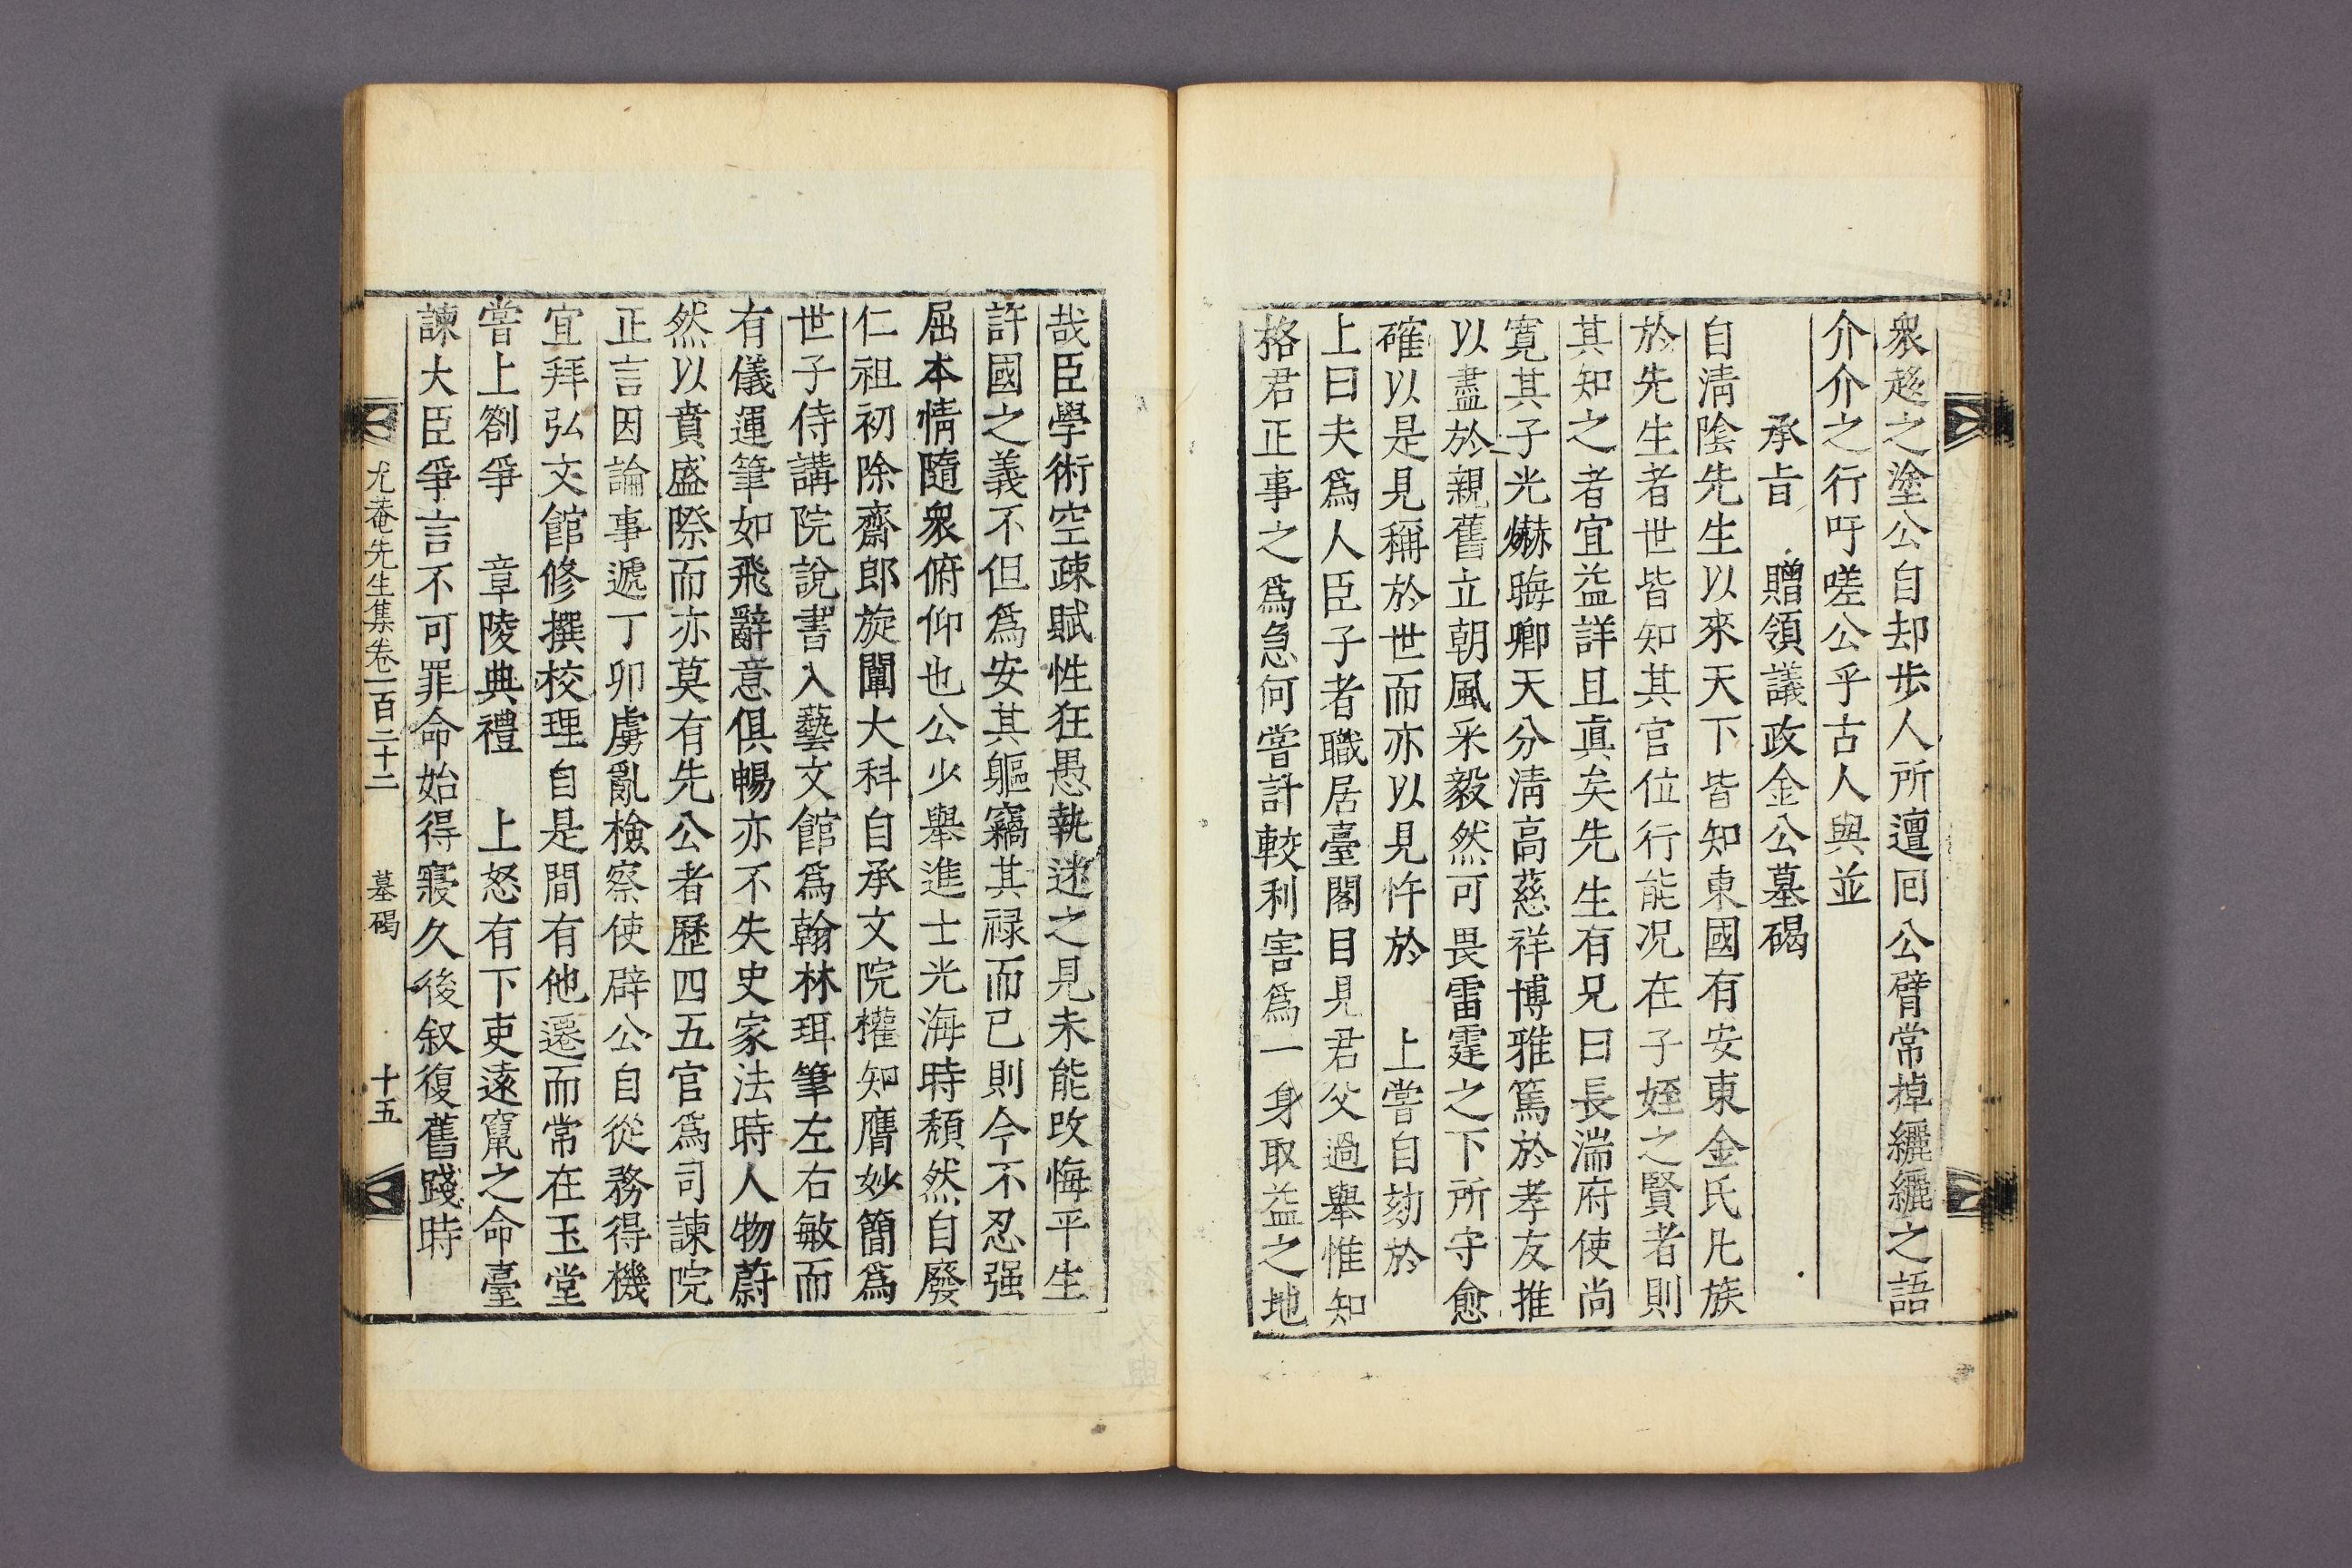 衆趍之塗公自却步人所邅囘公臂常掉纚纚之語
介介之行吁嗟公乎古人與並
承旨 贈領議政金公墓碣
自淸陰先生以來天下皆知東國有安東金氏凡族
於先生者世皆知其官位行能况在子姪之賢者則
其知之者宜益詳且眞矣先生有兄曰長湍府使尚
寬其子光爀晦卿天分淸高慈祥博雅篤於孝友推
以盡於親舊立朝風采毅然可畏雷霆之下所守愈
確以是見稱於世而亦以見忤於 上嘗自劾於
上曰夫爲人臣子者職居臺閣目見君父過擧惟知
格君正事之爲急何嘗計較利害爲一身取益之地
哉臣學術空疎賦性狂愚執迷之見未能改悔平生
許國之義不但爲安其軀竊其祿而已則今不忍强
屈本情隨衆俯仰也公少擧進士光海時頹然自廢
仁祖初除齋郎旋闡大科自承文院權知膺妙簡爲
世子侍講院說書入藝文館爲翰林珥筆左右敏而
有儀運筆如飛辭意俱暢亦不失史家法時人物蔚
然以賁盛際而亦莫有先公者歷四五官爲司諫院
正言因論事遞丁卯虜亂檢察使辟公自從務得機
宜拜弘文館修撰校理自是間有他遷而常在玉堂
嘗上劄爭 章陵典禮 上怒有下吏遠竄之命臺
諫大臣爭言不可罪命始得寢久後叙復舊踐時
尤菴先生集卷一百二十二 墓碣 十五